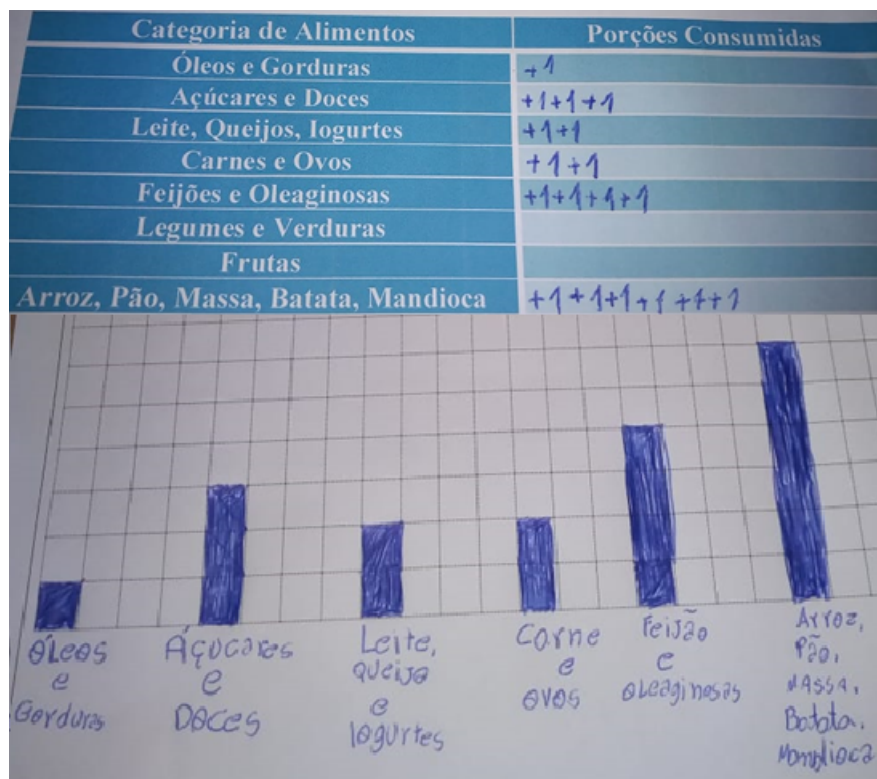 Categoria de Alimentos Porções Consumidas
Óleos e Gorduras +1
Açúcares e Doces +1+1+1
Leite, Queijos, Iogurtes +1+1
Carnes e Ovos +1+1
Feijões e Oleaginosas +1+1+1+1
Legumes e Verduras
Frutas
Arroz, Pão, Massa, Batata, Mandioca +1+1+1+1+1+1
ÓLEOS
e
Gorduras
Áçucares
e
Doces
Leite,
Queijo
e
Iogurtes
Carne
e
ovos
Feijão
e
oleaginosas
Arroz,
Pão,
MASSA,
Batata,
Mandioca